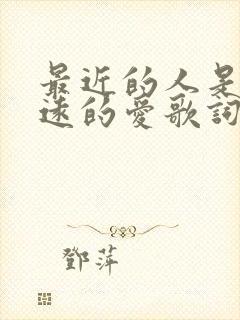 最近的人是
遠的愛歌詞
鄧萍